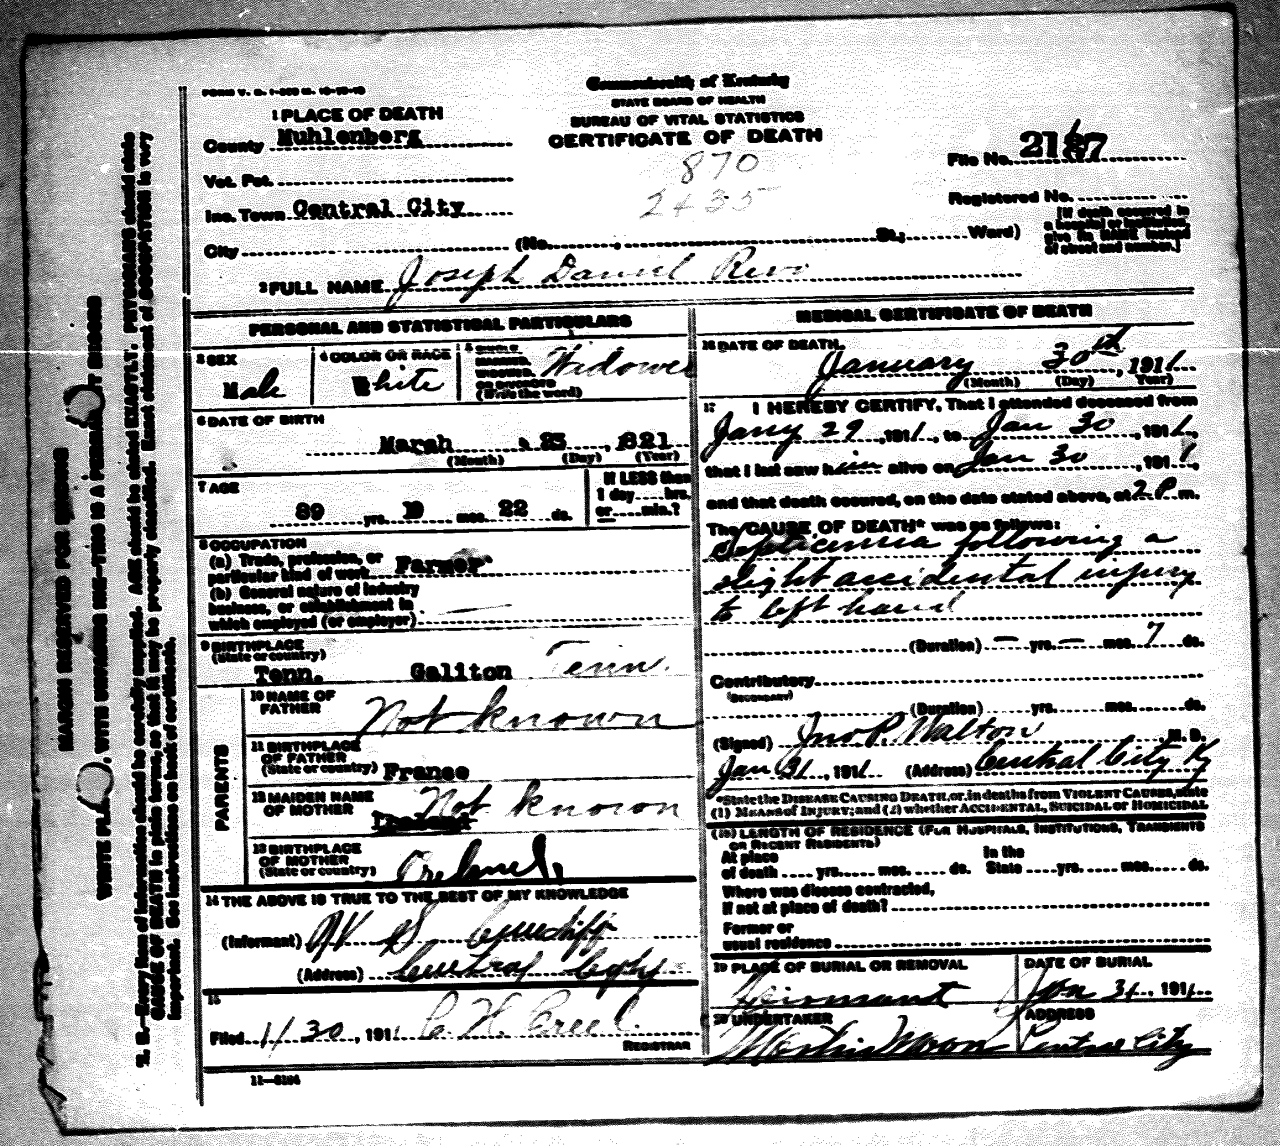 FORM V. S.
Commonwealth of Kentucky
STATE BOARD OF HEALTH
BUREAU OF VITAL STATISTICS
CERTIFICATE OF DEATH
870
2435
1 PLACE OF DEATH
County Muhlenberg
Vot. Pct.
Inc. Town Central City
City (No. , St.; Ward)
File No. 2187
Registered No.
[If death occurred in
a hospital or institution,
give its NAME instead
of street and number.]
2 FULL NAME Joseph Daniel
PERSONAL AND STATISTICAL PARTICULARS
3 SEX
Male
4 COLOR OR RACE
White
5 SINGLE,
MARRIED,
WIDOWED,
OR DIVORCED
(Write the word)
Widower
6 DATE OF BIRTH
March , 23 , 1821
(Month) (Day) (Year)
7 AGE
89 yrs. 10 mos. 22 ds.
If LESS than
1 day hrs.
or min.?
8 OCCUPATION
(a) Trade, profession, or
particular kind of work Farmer
(b) General nature of industry
business, or establishment in
which employed (or employer)
9 BIRTHPLACE
(State or country)
Tenn. Galiton Tenn.
PARENTS
10 NAME OF
FATHER
Not known
11 BIRTHPLACE
OF FATHER
(State or country) France
12 MAIDEN NAME
OF MOTHER
Not known
13 BIRTHPLACE
OF MOTHER
(State or country)
14 THE ABOVE IS TRUE TO THE BEST OF MY KNOWLEDGE
(Informant) S. Cundiff
(Address) Central City
15
Filed 1/30, 1911 C. H. Creel
REGISTRAR
11-5184
MEDICAL CERTIFICATE OF DEATH
16 DATE OF DEATH
January 30th, 1911
(Month) (Day) (Year)
17 I HEREBY CERTIFY, That I attended deceased from
Jany 29, 1911, to Jan 30, 1911,
that I last saw him alive on Jan 30, 1911,
and that death occured, on the date stated above, at 2 P m.
The CAUSE OF DEATH* was as follows:
Septicemia following a
slight accidental injury
to left hand
(Duration) — yrs. — mos. 7 ds.
Contributory
(SECONDARY)
(Duration) yrs. mos. ds.
(Signed) Jno P. Walton, M. D.
Jan 31, 1911 (Address) Central City Ky
*State the DISEASE CAUSING DEATH, or, in deaths from VIOLENT CAUSES, state
(1) MEANS OF INJURY; and (2) whether ACCIDENTAL, SUICIDAL or HOMICIDAL
(18) LENGTH OF RESIDENCE (FOR HOSPITALS, INSTITUTIONS, TRANSIENTS
OR RECENT RESIDENTS)
At place
of death yrs. mos. ds.
In the
State yrs. mos. ds.
Where was disease contracted,
If not at place of death?
Former or
usual residence
19 PLACE OF BURIAL OR REMOVAL
DATE OF BURIAL
Jan 31, 1911
20 UNDERTAKER
Martin Moore
ADDRESS
Central City
MARGIN RESERVED FOR BINDING
WRITE PLAINLY, WITH UNFADING INK—THIS IS A PERMANENT RECORD
N. B.—Every item of information should be carefully supplied. AGE should be stated EXACTLY. PHYSICIANS should state
CAUSE OF DEATH in plain terms, so that it may be properly classified. Exact statement of OCCUPATION is very
important. See instructions on back of certificate.